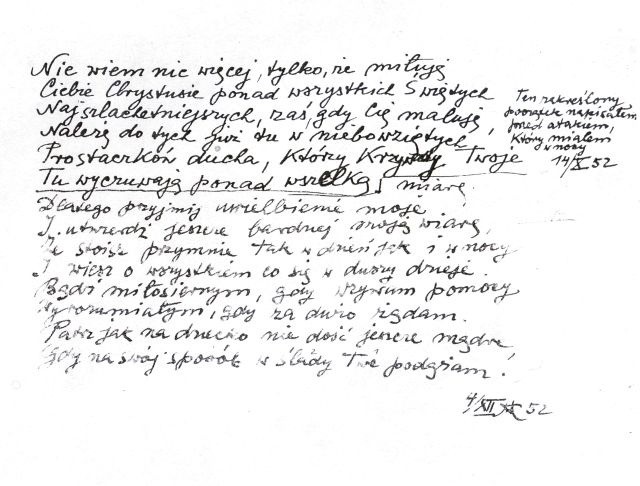 Nie wiem nic więcej, tylko, że miłuję
Ciebie Chrystusie ponad wszystkich Świętych
Najszlachetniejszych, zaś, gdy Cię maluję,
Należę do tych już tu w niebowziętych
Prostaczków ducha, Który Krzywdy Twoje
Tu wyczuwają ponad wszelką miarę
Dlatego przyjmij uwielbienie moje
I utwierdź jeszcze bardziej moją wiarę,
Że stoisz przymnie tak w dzień jak i w nocy
I wiesz o wszystkiem co się w duszy dzieje.
Bądź miłosiernym, gdy wzywam pomocy
Wyrozumiałym, gdy za dużo żądam.
Patrz jak na dziecko nie dość jeszcze mądre
Gdy na swój sposób w ślady Twe podążam!
4/XII 52
Ten zakreślony
początek napisałem
przed atakiem,
który miałem
w nocy
14/X 52